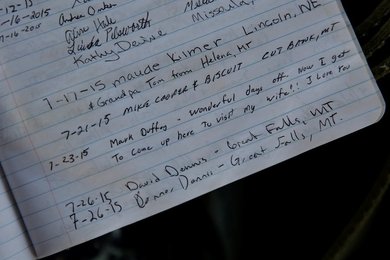 7-16-2015
Missoula,
Kathy Devine
7-17-15 Maude Kilmer Lincoln, NE
& Grandpa Tom from Helena, MT
7-21-15 MIKE COOPER & BISCUIT CUT BANK, MT
7-23-15 Mark Duffey - wonderful days off. Now I get
To come up here To visit my wife!! I Love You
7-26-15 David Dennis - Great Falls, MT
7-26-15 Dennis - Great Falls, MT.